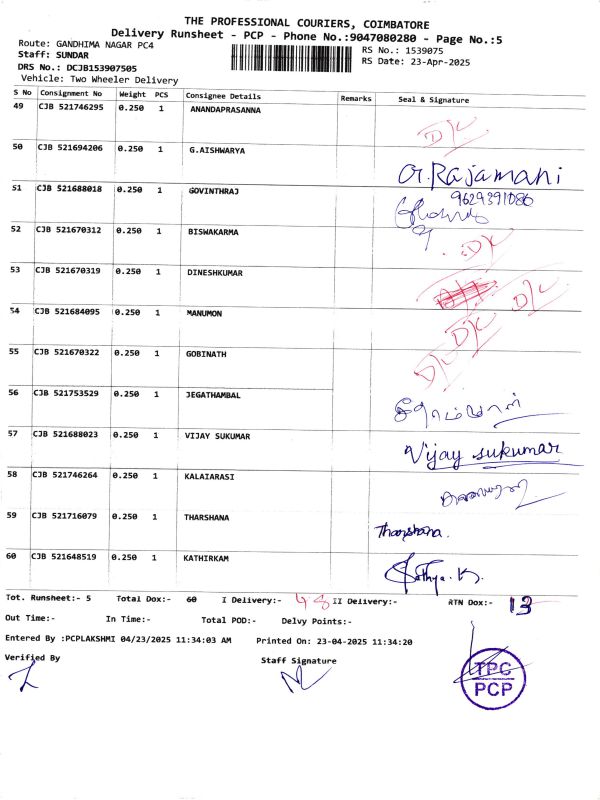 THE PROFESSIONAL COURIERS, COIMBATORE
Delivery Runsheet - PCP - Phone No.:9047080280 - Page No.:5
Route: GANDHIMA NAGAR PC4
RS No.: 1539075
Staff: SUNDAR
RS Date: 23-Apr-2025
DRS No.: DCJB153907505
Vehicle: Two Wheeler Delivery
S No Consignment No Weight PCS Consignee Details Remarks Seal & Signature
49 CJB 521746295 0.250 1 ANANDAPRASANNA D/C
50 CJB 521694206 0.250 1 G.AISHWARYA G.Rajamani
9629391086
51 CJB 521688018 0.250 1 GOVINTHRAJ
52 CJB 521670312 0.250 1 BISWAKARMA D/C
53 CJB 521670319 0.250 1 DINESHKUMAR D/C
54 CJB 521684095 0.250 1 MANUMON D/C
55 CJB 521670322 0.250 1 GOBINATH D/C
56 CJB 521753529 0.250 1 JEGATHAMBAL
57 CJB 521688023 0.250 1 VIJAY SUKUMAR Vijay sukumar
58 CJB 521746264 0.250 1 KALAIARASI
59 CJB 521716079 0.250 1 THARSHANA Tharshana.
60 CJB 521648519 0.250 1 KATHIRKAM Sathya.K.
Tot. Runsheet:- 5 Total Dox:- 60 I Delivery:- 48 II Delivery:- RTN Dox:- 13
Out Time:- In Time:- Total POD:- Delvy Points:-
Entered By :PCPLAKSHMI 04/23/2025 11:34:03 AM Printed On: 23-04-2025 11:34:20
Verified By Staff Signature
TPC
PCP